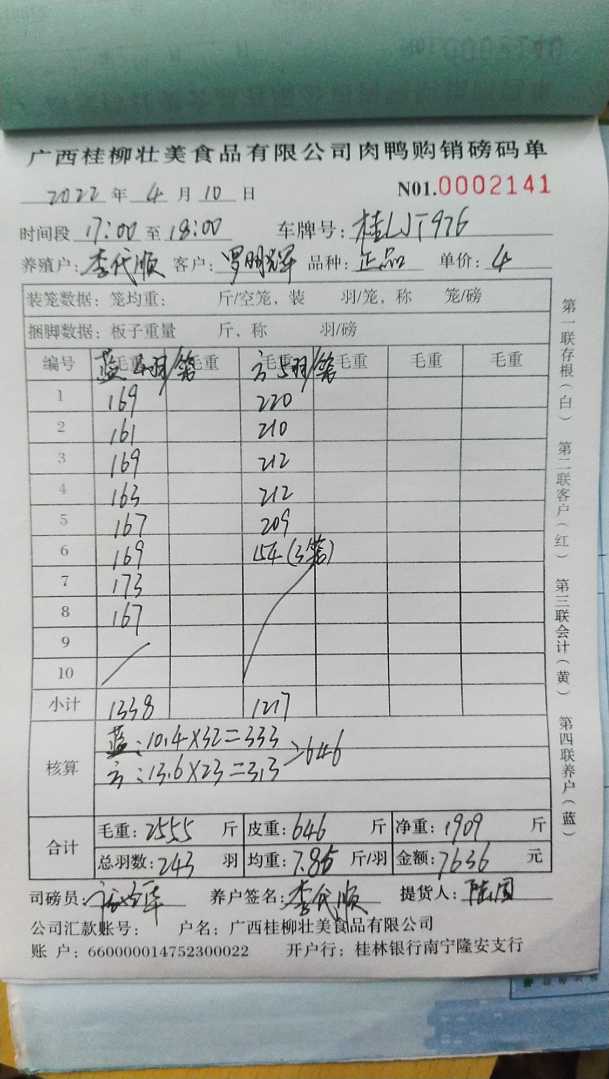 广西桂柳壮美食品有限公司肉鸭购销磅码单
2022 年 4 月 10 日 N01.0002141
时间段 17:00 至 18:00 车牌号: 桂LJT976
养殖户: 李代顺 客户: 罗明辉 品种: 正品 单价: 4
装笼数据: 笼均重: 斤/空笼, 装 羽/笼, 称 笼/磅
捆脚数据: 板子重量 斤, 称 羽/磅
编号 毛重 毛重 毛重 毛重 毛重 毛重
蓝 4羽/笼 方 5羽/笼
1 169 220
2 161 210
3 169 212
4 163 212
5 167 209
6 169 154 (3笼)
7 173
8 167
9
10
小计 1338 1217
核算 蓝: 10.4×32=333 >646
方: 13.6×23=313
合计 毛重: 2555 斤 皮重: 646 斤 净重: 1909 斤
总羽数: 243 羽 均重: 7.85 斤/羽 金额: 7636 元
司磅员: 养户签名: 李代顺 提货人:
公司汇款账号: 户名: 广西桂柳壮美食品有限公司
账 户: 660000014752300022 开户行: 桂林银行南宁隆安支行
第一联存根(白) 第二联客户(红) 第三联会计(黄) 第四联养户(蓝)